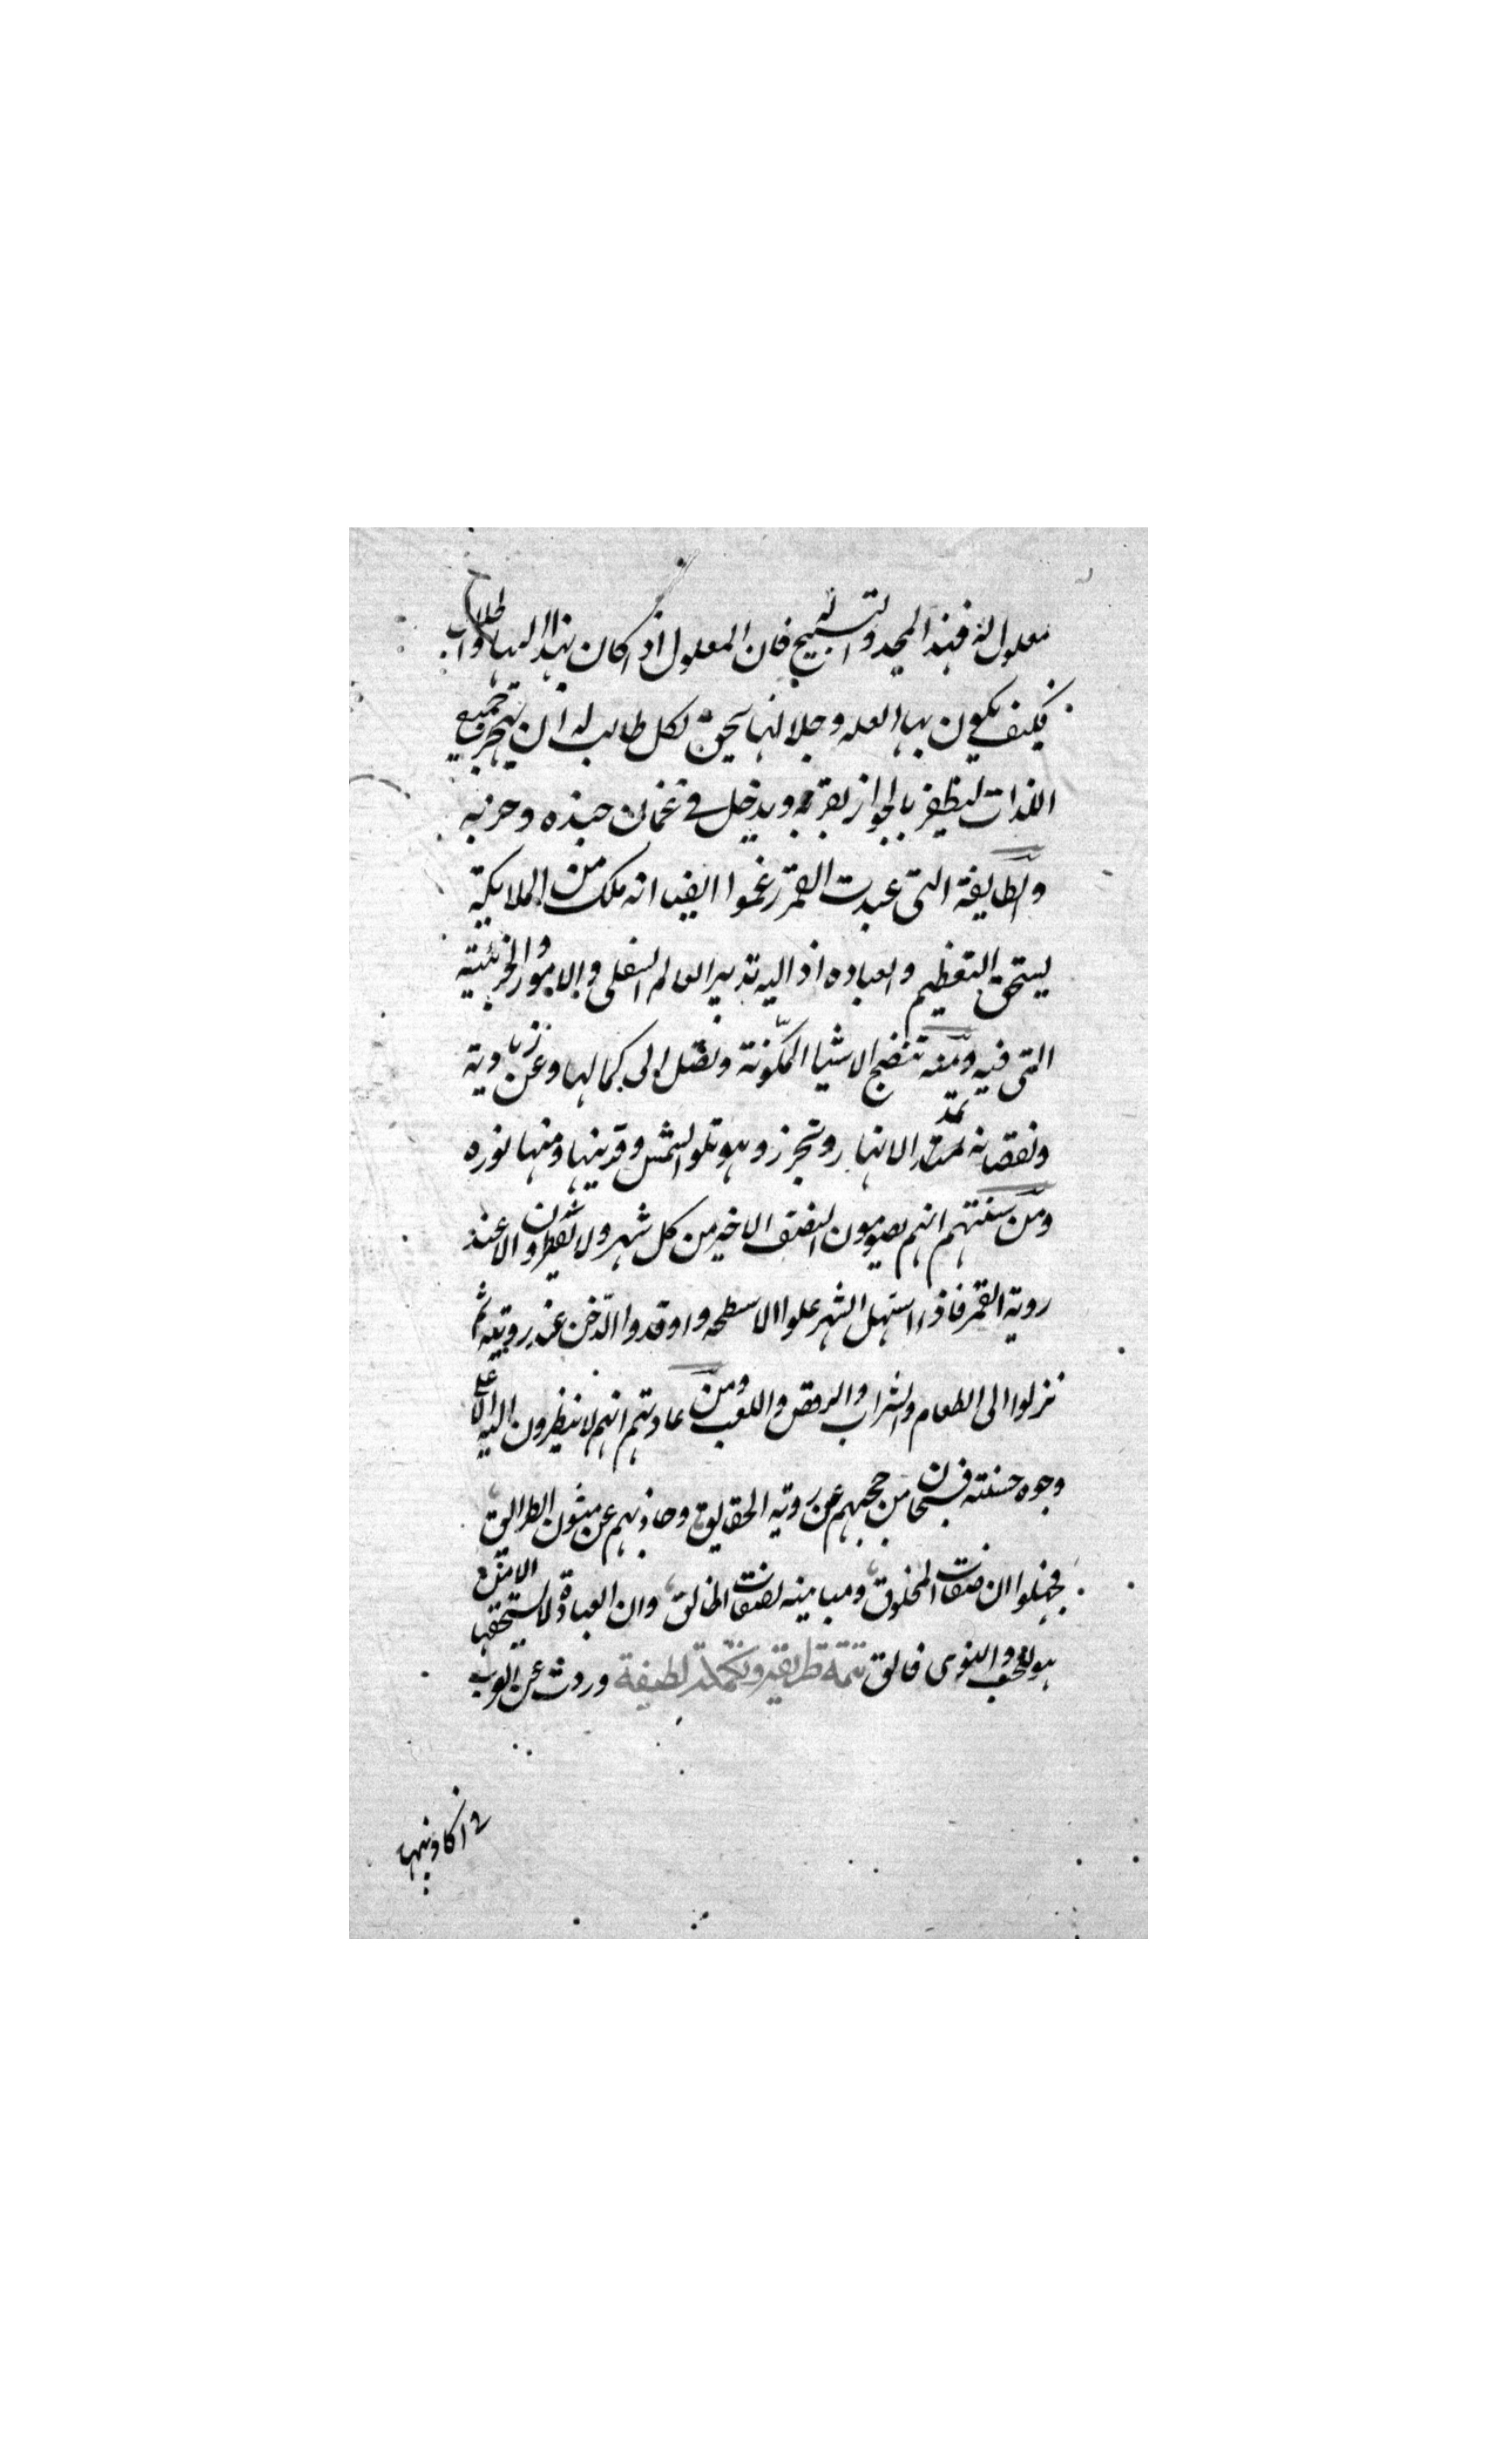 معلول له فهذ المجد والتسبيح له فان المعلول اذ اكان بهذا البها والجلال
فكيف يكون بها العله وجلالها يحق لكل طالب له ان يهجر جميع
اللذات ليظفر بالجواز بقربه ويدخل في غمان جنده وحزبه
والطايفة التى عبدت القمر زعموا ايضا انه ملك من الملايكة
يستحق التعظيم والعباده اذ اليه تدبير العالم السفلى والامور الجزئية
التى فيه ومنه تنضج الاشيا المكونة وتصل الى كمالها وعن زيادته
ونقصانه تمتد الانهار وتجزر وهو تلو الشمس وقرينها ومنها نوره
ومن سنتهم انهم يصومون النصف الاخير من كل شهر ولا يفطرون الا عند
روية القمر فاذا استهل الشهر علوا الاسطحه واوقدوا الدخن عند رويته ثم
نزلوا الى الطعام والشراب والرقص واللعب ومن عادتهم انهم لا ينظرون اليه الا على
وجوه حسنته فسبحان من حجبهم عن روية الحقايق وحاذبهم عن الطرايق
فجهلوا ان صفات المخلوق ومباينه لصفات الخالق وان العبادة لا يستحقها الا من
هو للحب والنوى فالق تتمة ظريفة ونكتة لطيفة وردت عن العرب
في اكاذيبها